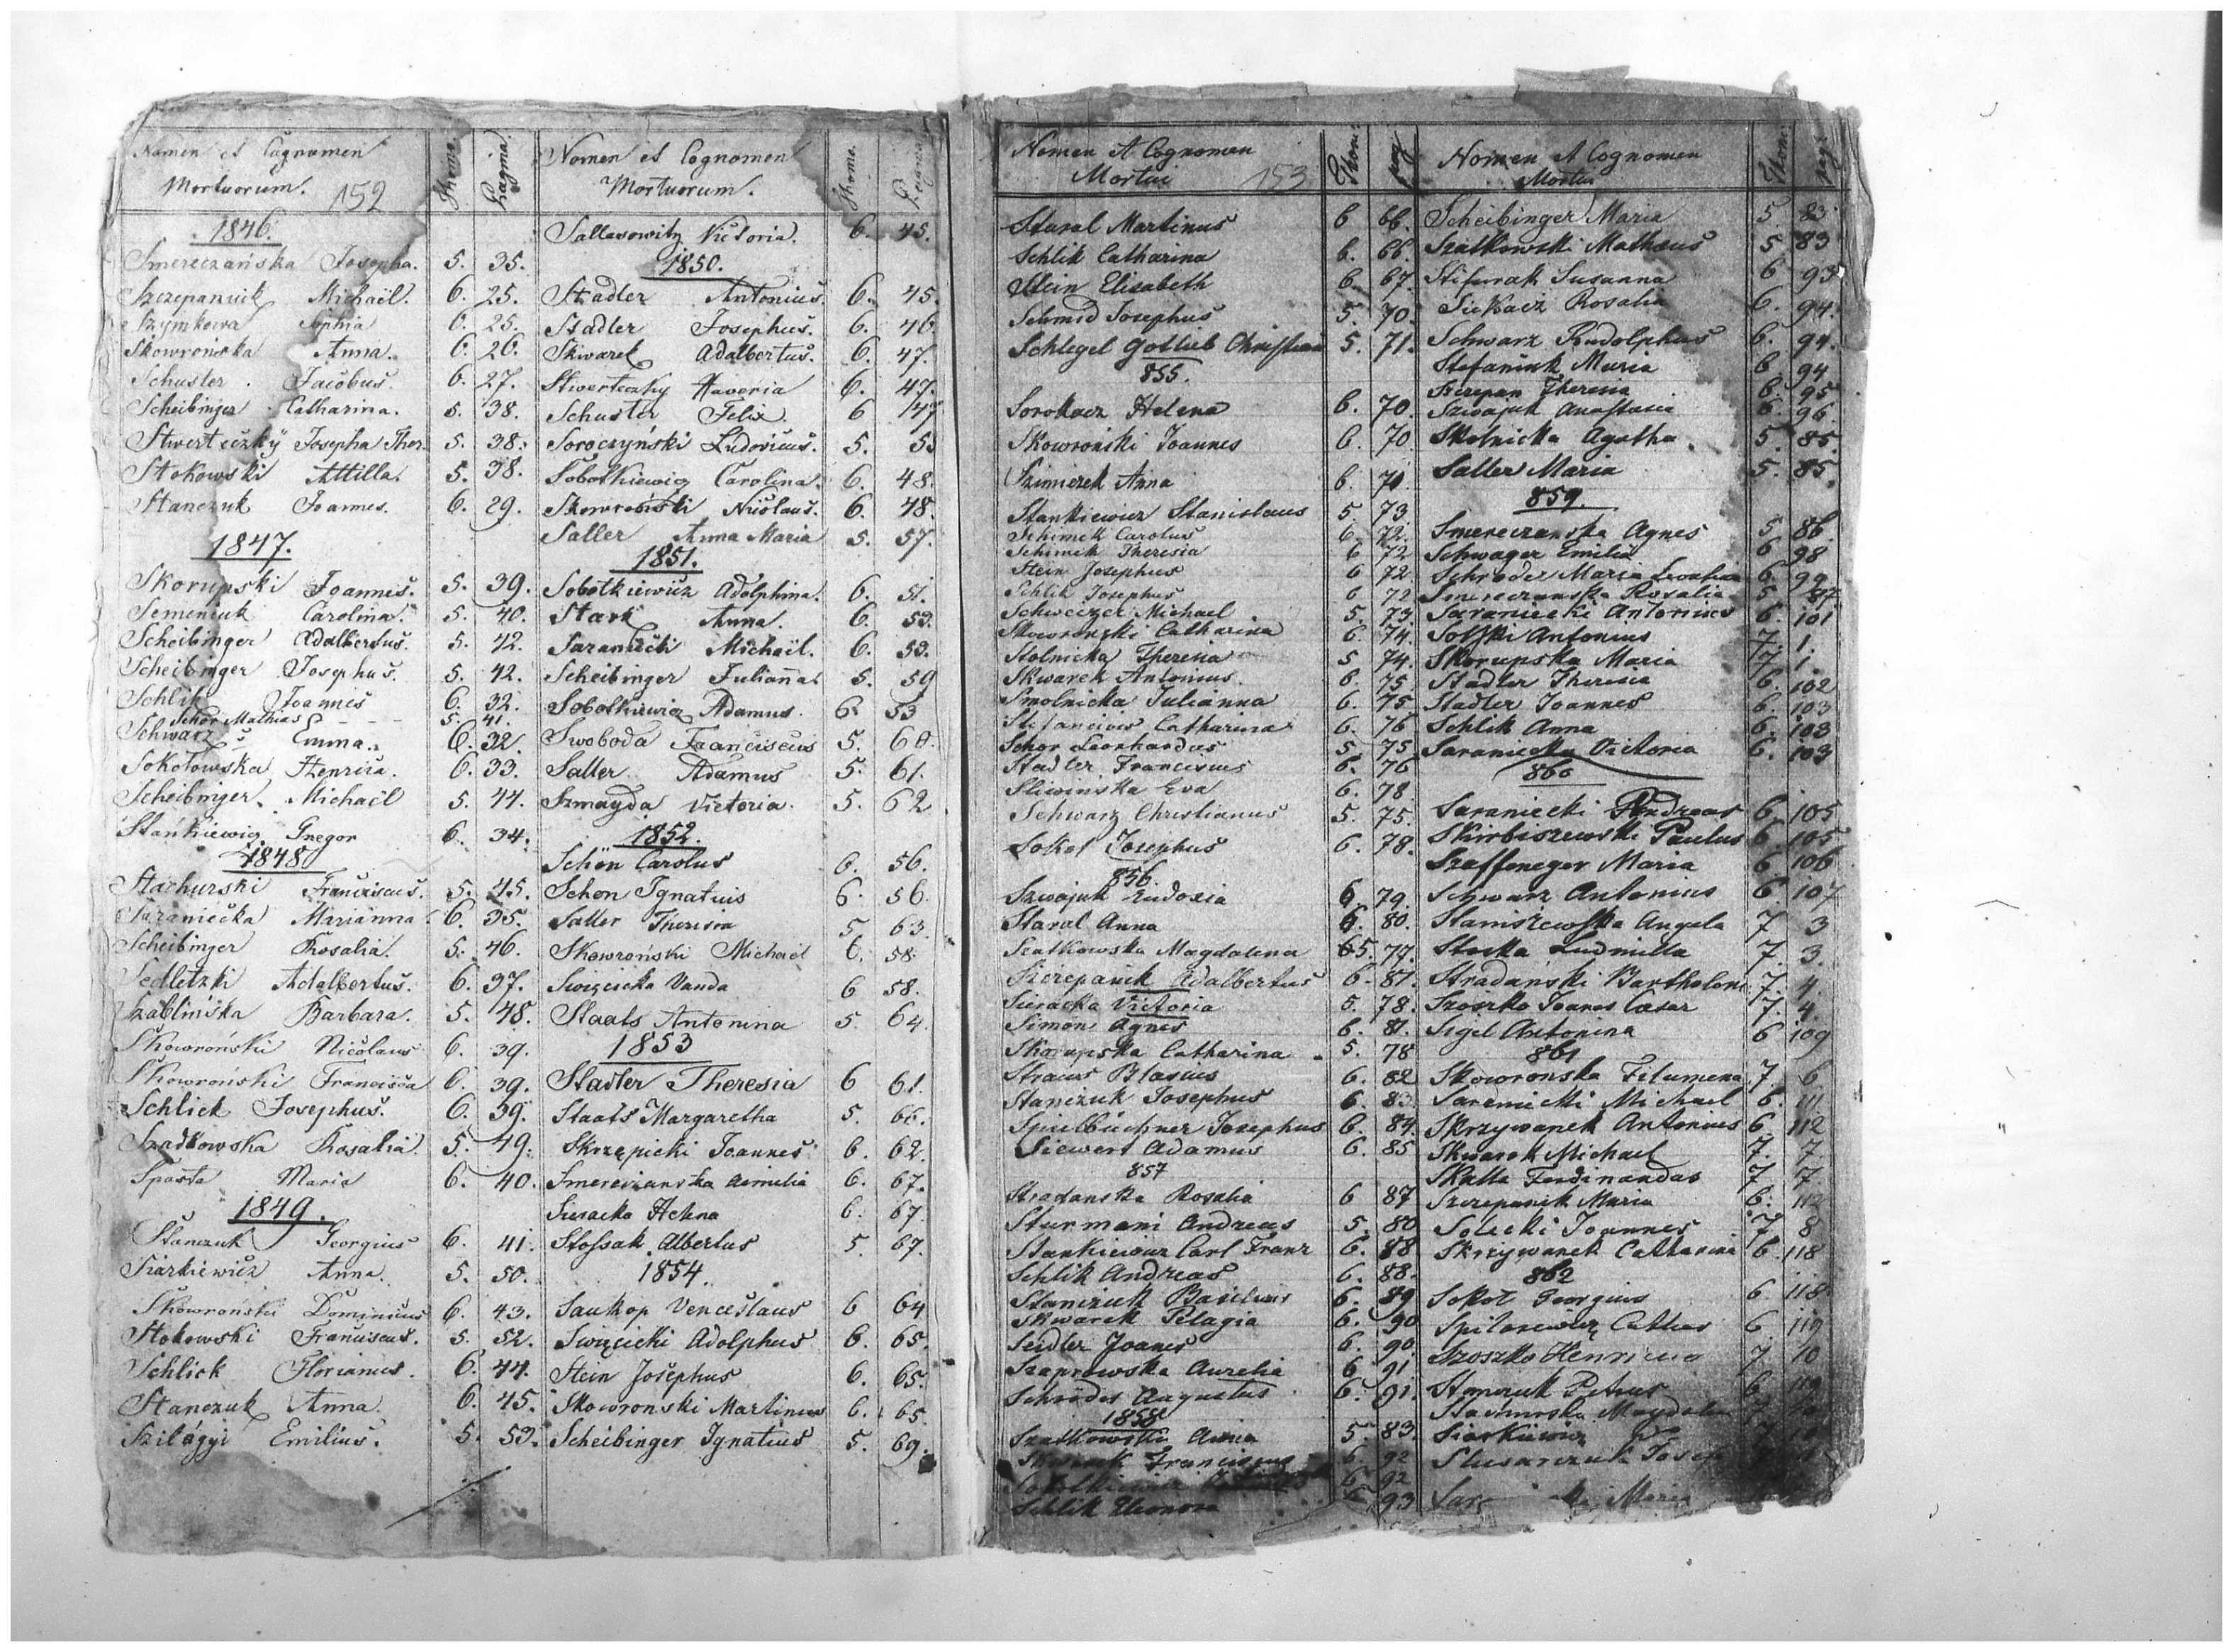 Nomen et Cognomen
Mortuorum. 152
Thome.
Pagina.
1846.
Smereczańska Josepha. 5. 35.
Szczepaniuk Michaël. 6. 25.
Szymkowa Sophia 6. 25.
Skowrońska Anna. 6. 26.
Schuster Jacobus. 6. 27.
Scheibinger Catharina. 5. 38.
Stwerteczky Josepha Ther. 5. 38.
Stokowski Attilla. 5. 38.
Stanczuk Joannes. 6. 29.
1847.
Skorupski Joannes. 5. 39.
Semeniuk Carolina. 5. 40.
Scheibinger Adalbertus. 5. 42.
Scheibinger Josephus. 5. 42.
Schlik Joannes 6. 32.
Schor Mathias 5. 41.
Schwarz Emma. 6. 32.
Sokołowska Henrica. 6. 33.
Scheibinger Michaël 5. 44.
Stankiewicz Gregor 6. 34.
1848
Stachurski Franciscus. 5. 45.
Saraniecka Marianna 6. 35.
Scheibinger Rosalia. 5. 46.
Sedletzki Adalbertus. 6. 37.
Szablińska Barbara. 5. 48.
Skowroński Nicolaus 6. 39.
Skowroński Francisca 6. 39.
Schlick Josephus. 6. 39.
Szadkowska Rosalia. 5. 49.
Sposta Maria 6. 40.
1849.
Stanczuk Georgius 6. 41.
Siarkiewicz Anna. 5. 50.
Skowroński Dominicus 6. 43.
Stokowski Franciscus. 5. 52.
Schlick Florianus. 6. 44.
Stanczuk Anna. 6. 45.
Szilágyi Emilius. 5. 53.
Nomen et Cognomen
Mortuorum.
Thome.
Pagina
Sallasowitz Victoria. 6. 45.
1850.
Stadler Antonius. 6. 45.
Stadler Josephus. 6. 46.
Skwarek Adalbertus. 6. 47.
Stwerteczky Xaveria 6. 47.
Schuster Felix. 6 47
Soroczyński Ludovicus. 5. 55
Sobotkiewicz Carolina. 6. 48.
Skowroński Nicolaus. 6. 48.
Saller Anna Maria 5. 57.
1851.
Sobotkiewicz Adolphina. 6. 51.
Stark Anna. 6. 53.
Saraniecki Michaël. 6. 53.
Scheibinger Julianna. 5. 59
Sobotkiewicz Adamus. 6 53
Swoboda Franciscus 5. 60.
Saller Adamus 5. 61.
Szmayda Victoria. 5. 62
1852.
Schön Carolus 6. 56.
Schon Ignatius 6. 56.
Saller Theresia 5 63.
Skowroński Michaël 6. 58.
Swięcicka Vanda 6 58.
Staats Antonina 5 64.
1853
Stadler Theresia 6 61.
Staats Margaretha 5. 66.
Skrzepicki Joannes 6. 62.
Smereczanska Aemilia 6. 67.
Sieracka Helena 6. 67.
Stossak Albertus 5. 67.
1854.
Saukop Venceslaus 6 64
Swięcicki Adolphus 6. 65.
Stein Josephus 6. 65.
Skowronski Martinus 6. 65.
Scheibinger Ignatius 5. 69.
Nomen et Cognomen
Mortui 153
Thom:
pag
Staral Martinus 6 66.
Schlik Catharina 6. 66.
Stein Elisabeth 6. 67.
Schmid Josephus 5. 70.
Schlegel Gotlieb Christian 5. 71.
855.
Sorokacz Helena 6. 70.
Skowroński Joannes 6. 70
Szimierek Anna 6. 71.
Stankiewicz Stanislaus 5 73
Schimek Carolus 6. 72.
Schimek Theresia 6 72
Stein Josephus 6 72
Schlik Josephus 6 72
Schweizer Michael 5. 73.
Skowronski Catharina 6. 74.
Stolnicka Theresia 5 74.
Skwarek Antonius. 6. 75
Smolnicka Julianna 6. 75
Stefanciow Catharina 6. 76
Schor Leonhardus 5. 75
Stadler Franciscus 6. 76
Sliwinska Eva 6. 78
Schwarz Christianus 5. 75.
Sokol Josephus 6. 78.
856.
Szwajuk Eudoxia 6. 79.
Staral Anna 6. 80.
Szatkowska Magdalena 5. 77.
Szczepanik Adalbertus 6. 81.
Sieracka Victoria 5. 78.
Simon Agnes 6. 81.
Skorupska Catharina 5. 78
Straus Blasius 6. 82
Stanczuk Josephus 6. 83.
Spielbüchner Josephus 6. 84.
Siewert Adamus 6. 85
857
Stradanska Rosalia 6 87
Sturmani Andreas 5. 80
Stankiewicz Carl Franz 6. 88
Schlik Andreas 6. 88.
Stanczuk Basilius 6. 89
Skwarek Pelagia 6. 90
Seidler Joanes 6. 90.
Szaprowska Aurelia 6 91
Schröder Augustus 6. 91.
1858
Szatkowska Anna 5. 83.
Skwarek Franciscus 6 92
6 92
Schlik Eleonora 6 93
Nomen et Cognomen
Mortui
Thom:
pag:
Scheibinger Maria 5 83
Szatkowski Matheus 5 83
Stifurak Susanna 6 93
Siekacz Rosalia 6. 94.
Schwarz Rudolphus 6. 94.
Stefaniuk Maria 6 94
Szczepan Theresia 6. 95
Szwajuk Anastasia 6. 96
Skolnicka Agatha 5. 85.
Saller Maria 5. 85.
859.
Smereczanska Agnes 5 86
Schwager Emilia 6 98
Schröder Maria 6 99
Smereczanska Rosalia 5 87
Saraniecki Antonius 6. 101
Solski Antonius 7. 1.
Skorupska Maria 7 1.
Stadler Theresia 6. 102
Stadler Joannes 6. 103
Schlik Anna 6. 103
Saraniecka Victoria 6. 103
860
Saraniecki Andreas 6 105
Skirbiszewski Paulus 6 105
Szaffeneger Maria 6 106
Schwarz Antonius 6 107
Staniszewska Angela 7 3
Stecka Ludmilla 7. 3.
Stradański Bartholom: 7. 4.
Szoszko Joanes Casar 7. 4.
Sigel Antonina 6 109
861
Skowronska Filumena 7. 6
Saraniecki Michael 6. 111
Skrzywanek Antonius 6 112
Skwarek Michael 7. 7.
Skalla Ferdinandus 7 7
Szczepanik Maria 6. 112
Solecki Joannes 7 8
Skrzywanek Catharina 6. 118
862
Sokol Georgius 6. 118
Spilarewicz Cathar 6 119
Szoszko Henricus 7. 10
Stanczuk Petrus 6 119
Siarkiewicz
Slusarczuk Josep
Maria